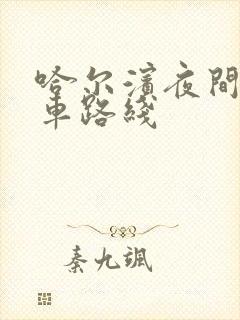 哈尔滨夜间
车路线
秦九飒